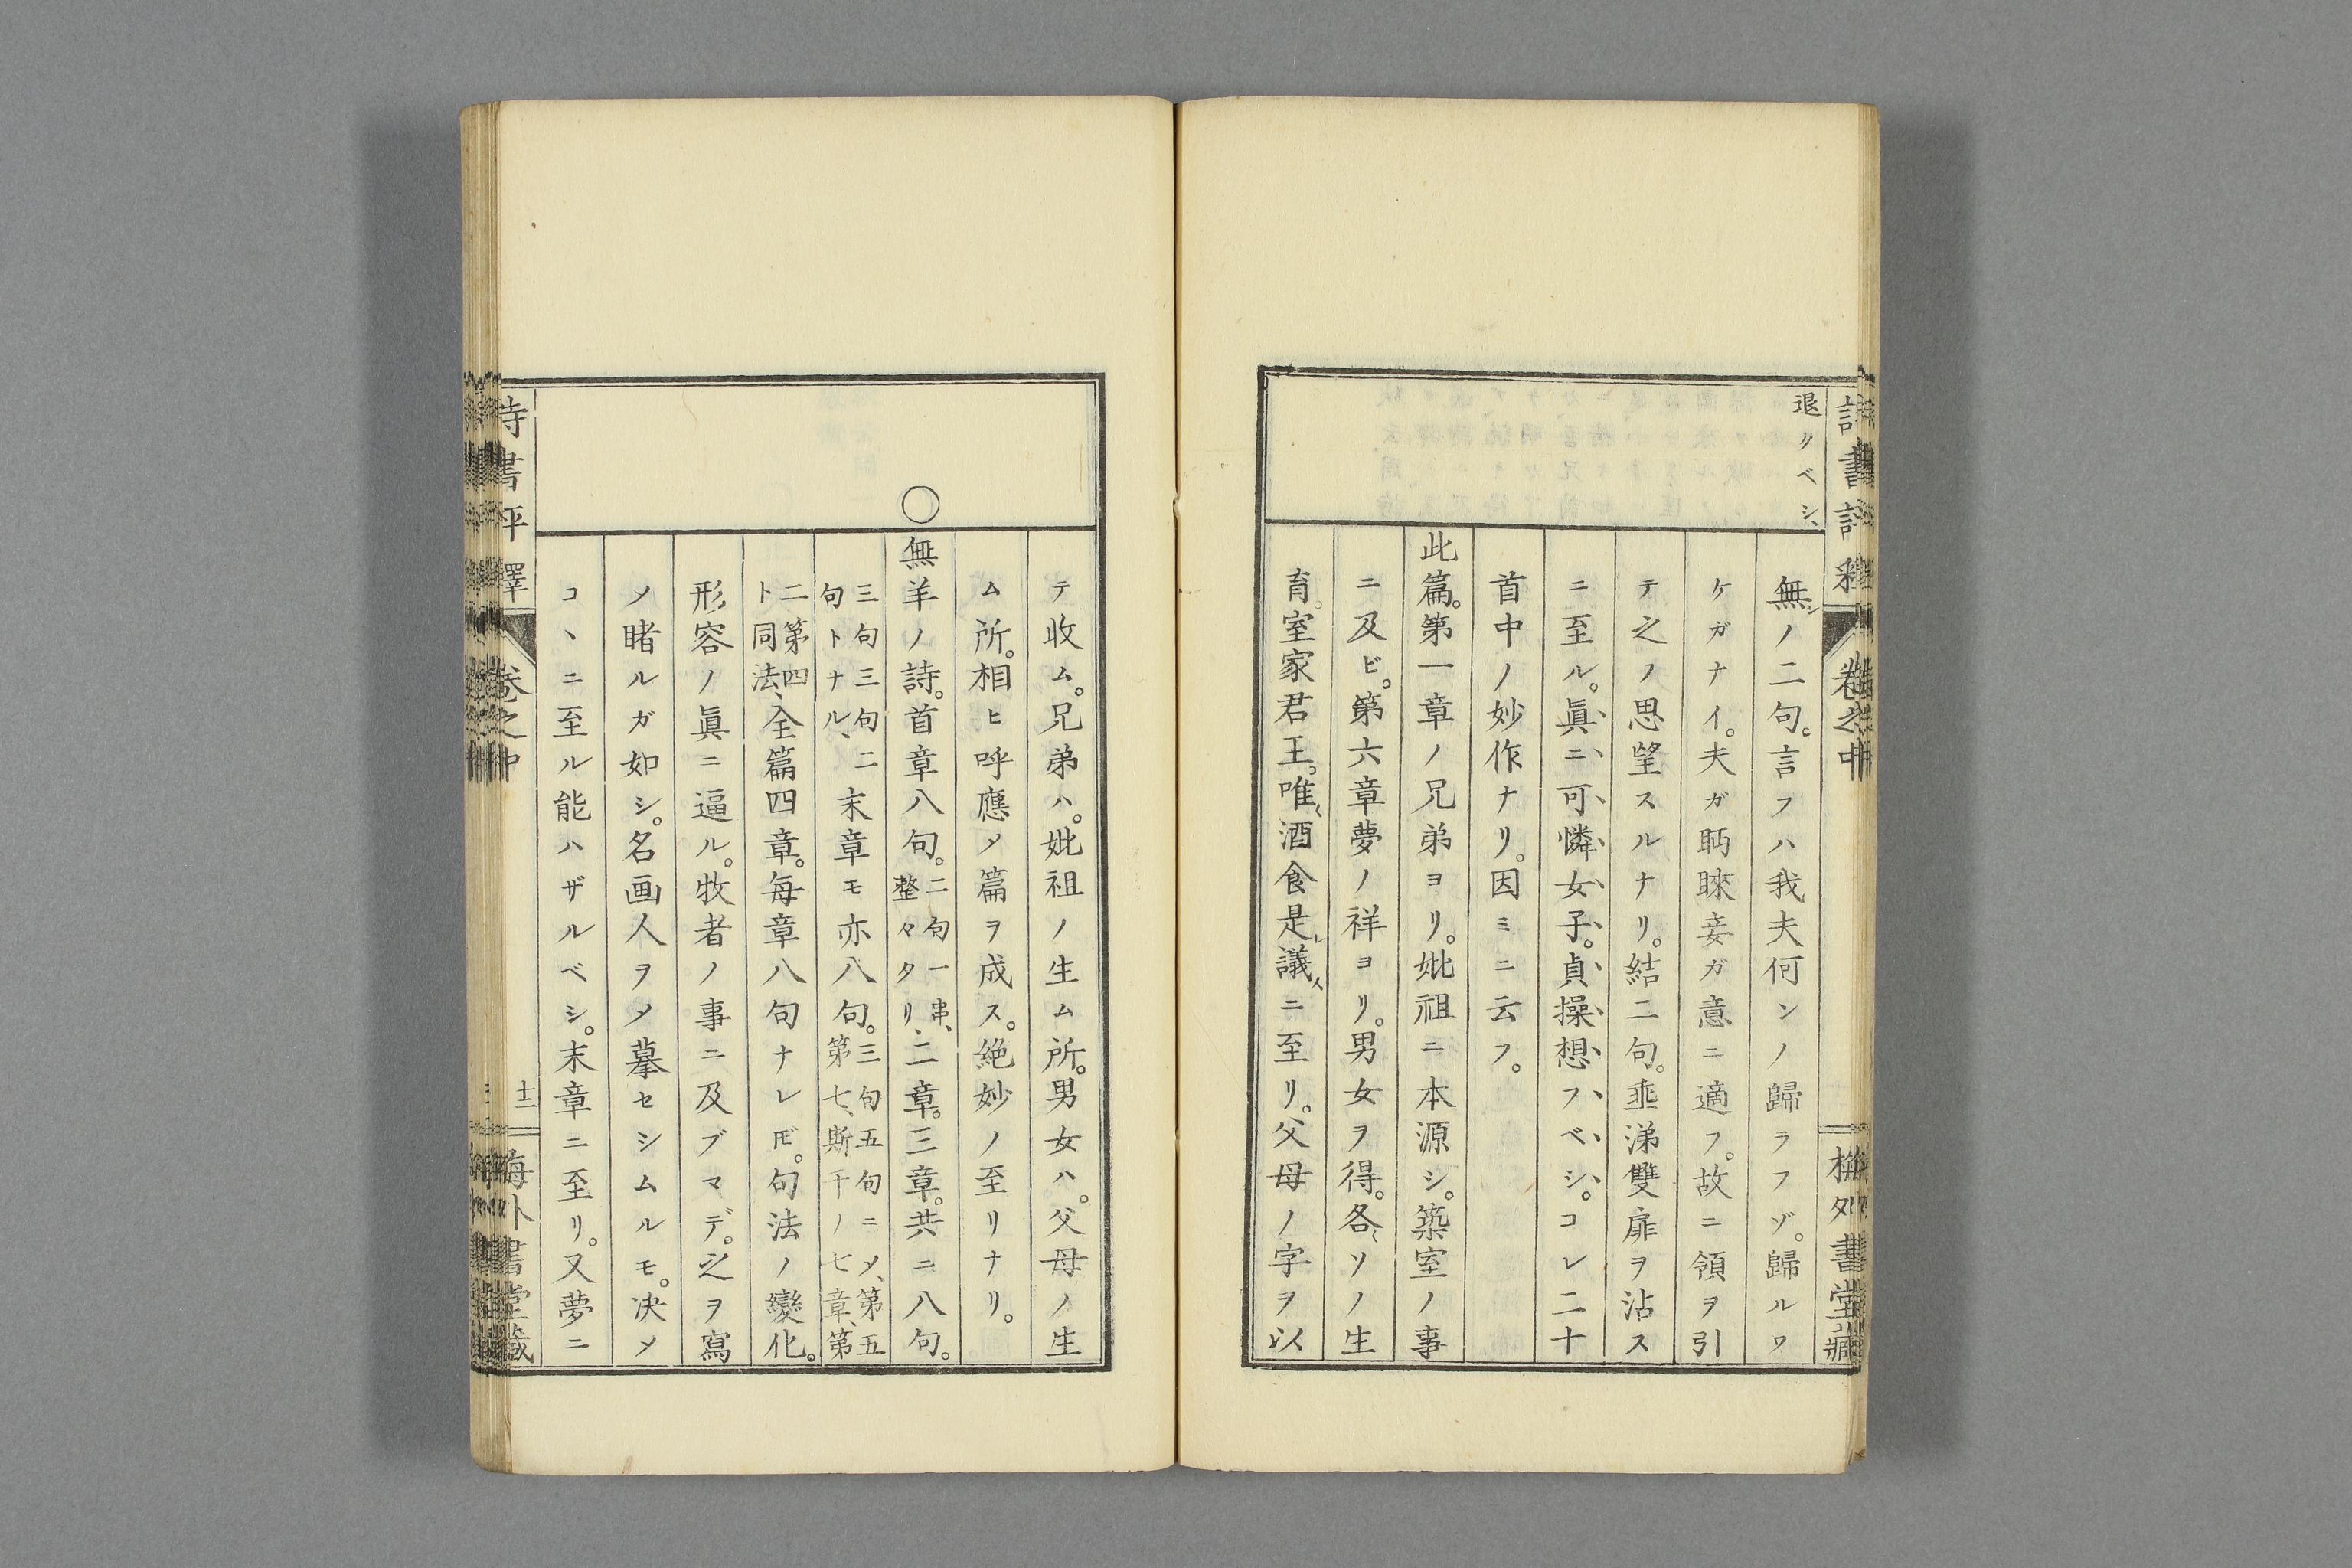 退クベシ、
無シノ二句。言フハ我夫何ンノ歸ラフゾ。歸ルワ
ケガナイ。夫ガ眄睞妾ガ意ニ適フ。故ニ領ヲ引
テ之ノ思望スルナリ。結二句。埀涕雙扉ヲ沾ス
ニ至ル。眞ニ可憐女子。貞操想フベシ。コレ二十
首中ノ妙作ナリ。因ミニ云フ。
此篇。第一章ノ兄弟ヨリ。妣祖ニ本源シ。築室ノ事
ニ及ビ。第六章夢ノ祥ヨリ。男女ヲ得。各〻ソノ生
育。室家君王。唯〻酒食是レ議スニ至リ。父母ノ字ヲ以
梅外書堂藏
テ收ム。兄弟ハ。妣祖ノ生ム所。男女ハ。父母ノ生
ム所。相ヒ呼應メ篇ヲ成ス。絶妙ノ至リナリ。
○無羊ノ詩。首章八句。二句一串、整々タリ、二章。三章。共ニ八句。
三句三句二句トナル、末章モ亦八句。三句五句ニメ、第五第七、斯干ノ七章、第
二第四ト同法、全篇四章。毎章八句ナレ𪜈。句法ノ變化。
形容ノ眞ニ逼ル。牧者ノ事ニ及ブマデ。之ヲ寫
ノ睹ルガ如シ。名画人ヲメ摹セシムルモ。决メ
コヽニ至ル能ハザルベシ。末章ニ至リ。又夢ニ
卷之中
十二